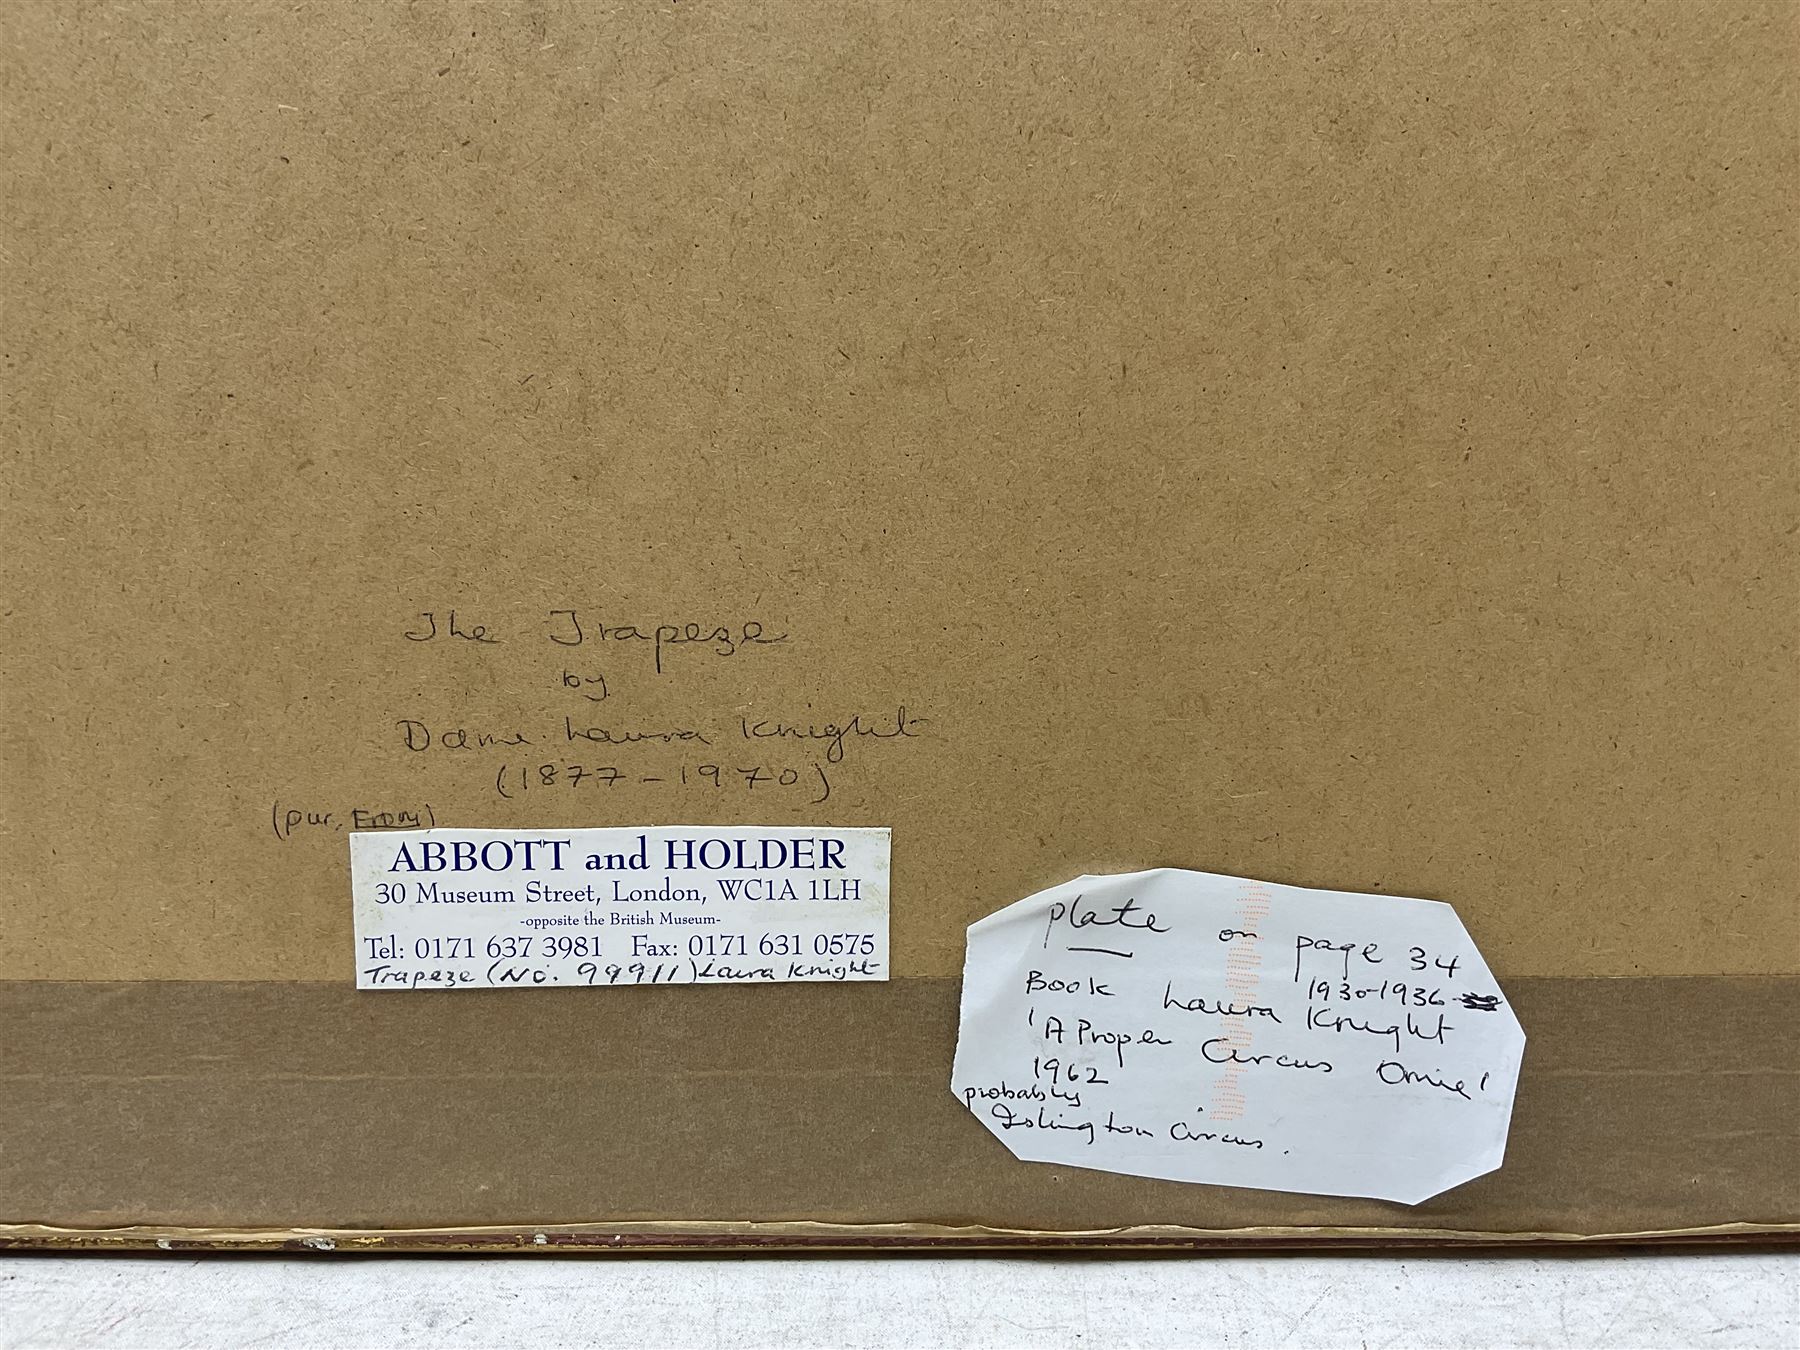 The Trapeze
by
Dame Laura Knight
(1877-1970)
(pur. From)
ABBOTT and HOLDER
30 Museum Street, London, WC1A 1LH
-opposite the British Museum-
Tel: 0171 637 3981 Fax: 0171 631 0575
Trapeze (No. 99911) Laura Knight
plate on page 34
1930-1936
Book Laura Knight
'A Proper Circus Omie'
1962
probably
Islington Circus.